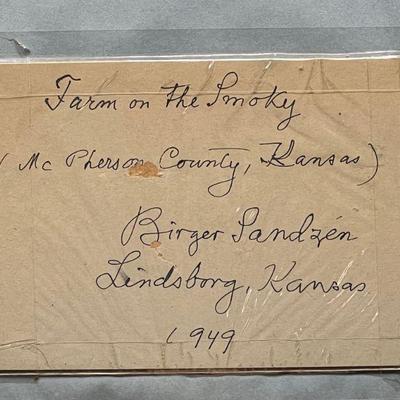 Farm on the Smoky
( Mc Pherson County, Kansas)
Birger Sandzén
Lindsborg, Kansas
1949